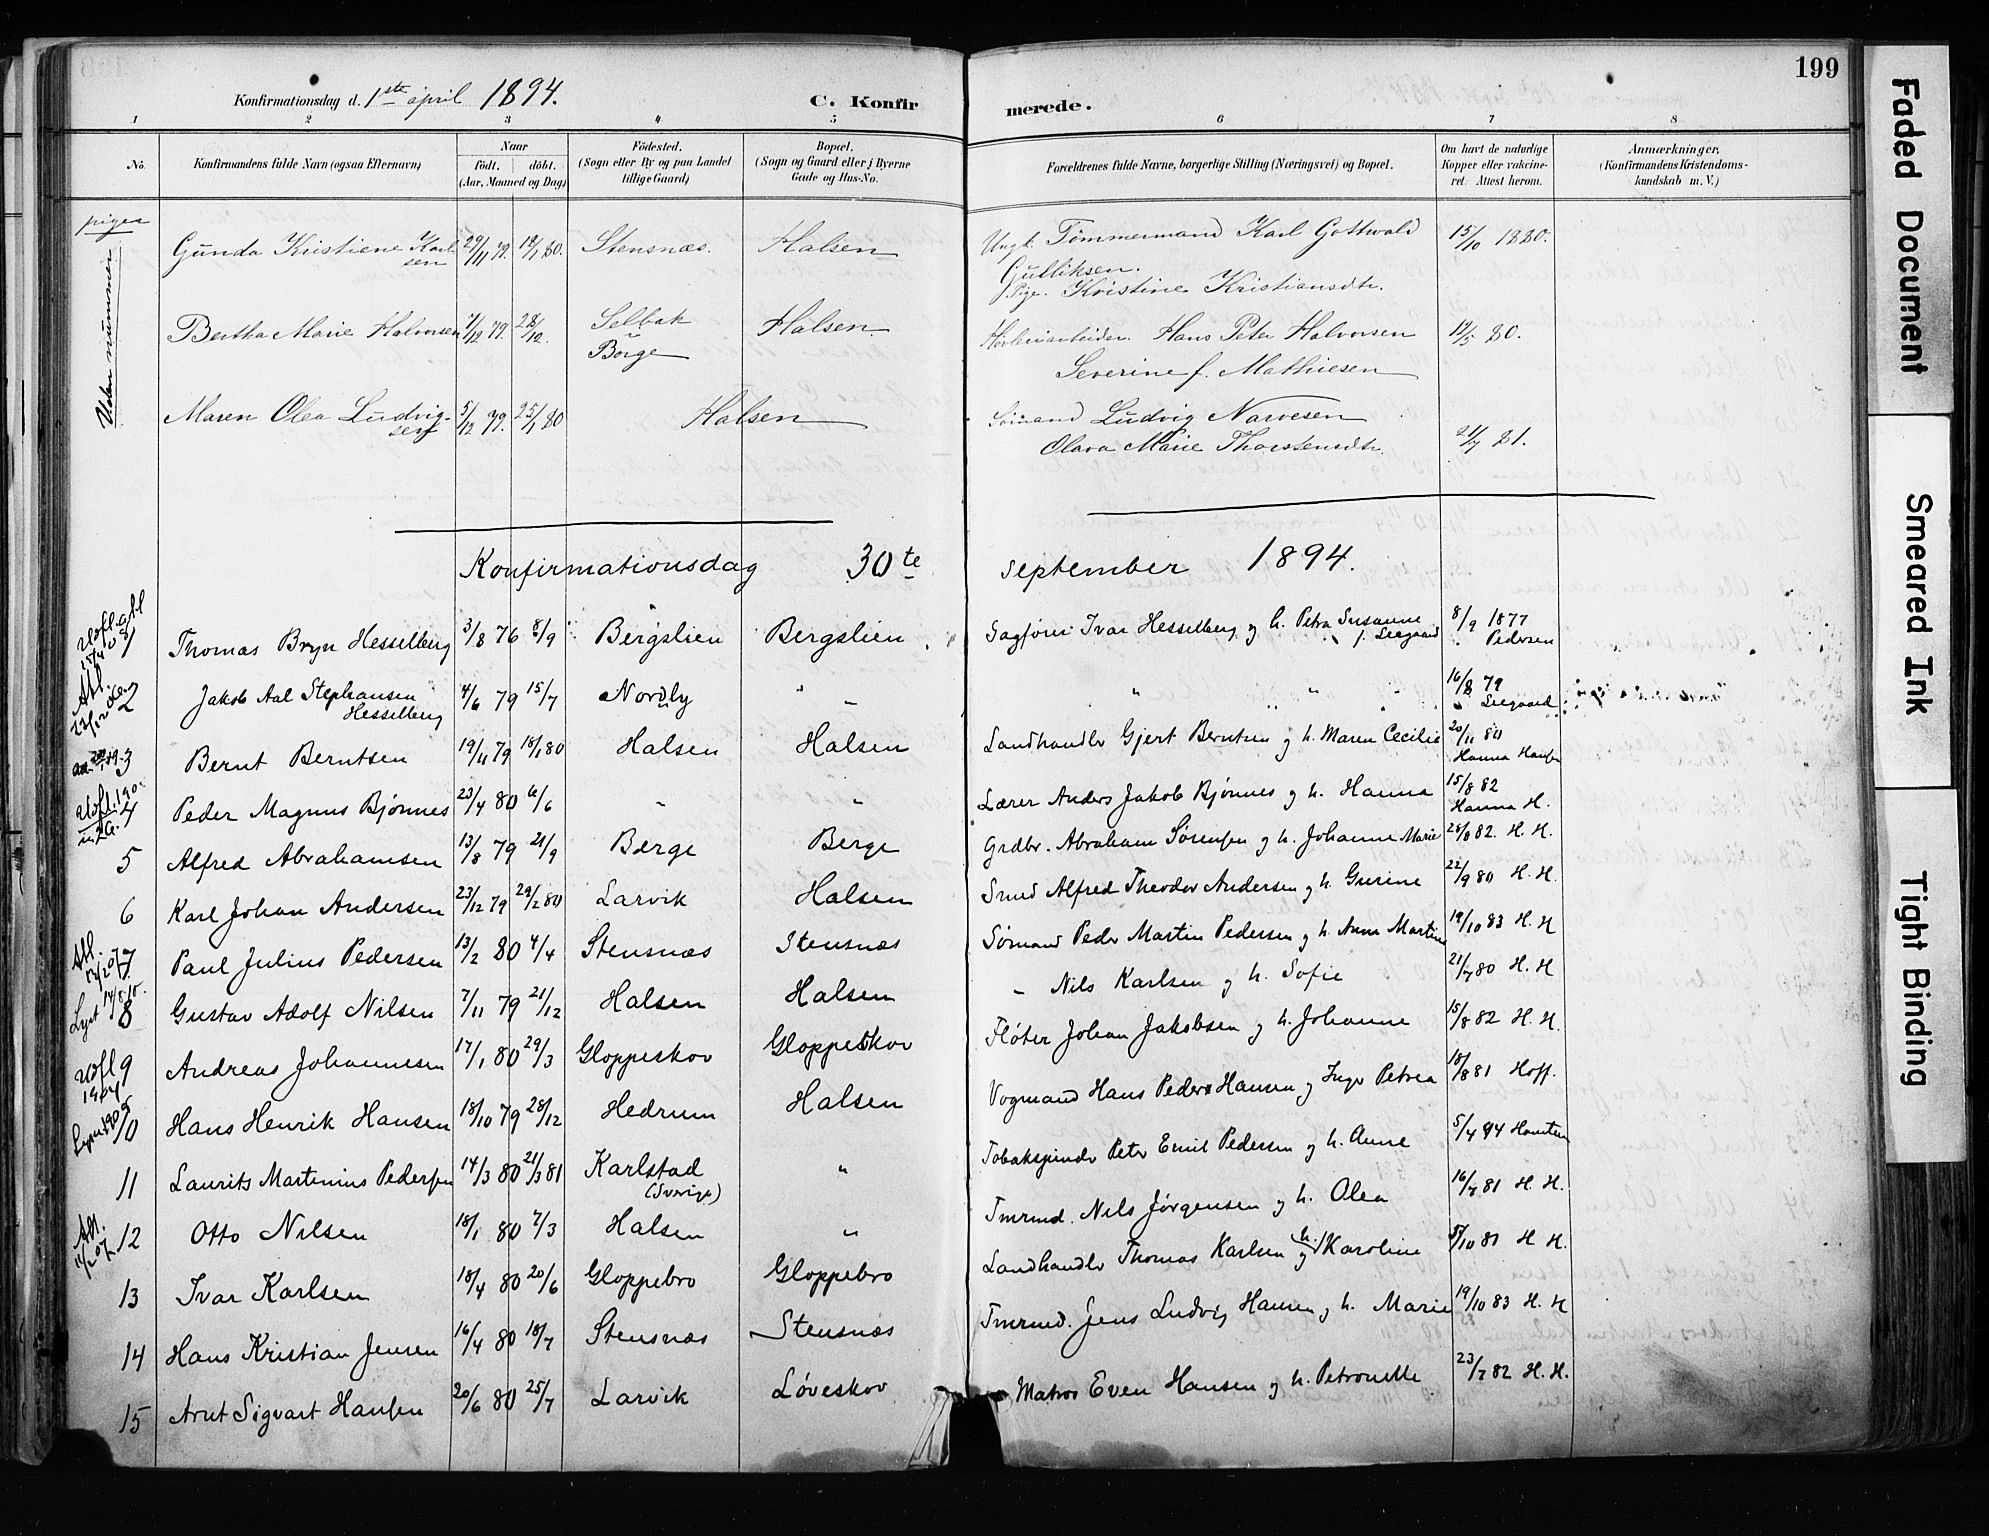 199
Konfirmationsdag d. 1ste april 1894. C. Konfirmerede.
1 2 3 4 5 6 7 8
No. Konfirmandens fulde Navn (ogsaa Efternavn) Naar født. døbt. (Aar, Maaned og Dag) Födested. (Sogn eller By og paa Landet tillige Gaard) Bopæl. (Sogn og Gaard eller i Byerne Gade og Hus-No. Forældrenes fulde Navne, borgerlige Stilling (Næringsvei) og Bopæl. Om havt de naturlige Kopper eller vakcineret. Attest herom. Anmærkninger. (Konfirmandens Kristendomskundskab m. V.)
piger
Uden nummer
Gunda Kristiene Karlsen 29/11 79. 18/1 80. Stensnæs. Halsen Ungk. Tömmermand Karl Gottwald 15/10 1880.
Gulliksen.
Pige. Kristine Kristiansdtr.
Bertha Marie Halvorsen 7/12 79. 28/12. Selbak Halsen Hans Peter Halvorsen 19/5 80.
Borge Severine f. Mathiesen
Maren Olea Ludvigsen 5/12 79. 25/1 80 Halsen Sömand Ludvig Narvesen
Olava Marie Thorstensdtr. 21/7 81.
Konfirmationsdag 30te september 1894.
1 Thomas Bryn Hesselberg 3/8 76 8/9 Bergslien Bergslien Sagfører Ivar Hesselberg og h. Petra Susanne f. Seegaard 8/9 1877 Pedersen
2 Jakob Aal Stephansen Hesselberg 4/6 79 15/7 Nordly " " " " 16/8 79 Seegaard
3 Bernt Berntsen 19/11 79 18/1 80 Halsen Halsen Landhandler Gjert Berntsen og h. Maren Cecilie 20/11 80 Hanna Hansen
4 Peder Magnus Bjønnes 23/4 80 6/6 " " Lærer Anders Jakob Bjønnes og h. Hanna 15/8 82 Hanna H.
5 Alfred Abrahamsen 13/8 79 21/9 Berge Berge Grdbr. Abraham Sørensen og h. Johanne Marie 28/8 82. H. H.
6 Karl Johan Andersen 23/12 79 29/2 80 Larvik Halsen Smed Alfred Theodor Andersen og h. Gurine 22/9 80 H. H.
7 Paul Julius Pedersen 13/2 80 4/4 Stensnæs Stensnæs Sømand Peder Martin Pedersen og h. Anne Martine 19/10 83 H. H
8 Gustav Adolf Nilsen 7/11 79 21/12 Halsen Halsen " Nils Karlsen og h. Sofie 21/7 80 H. H
9 Andreas Johannesen 17/1 80 29/3 Gloppeskov Gloppeskov Fløter Johan Jakobsen og h. Johanne 15/8 82 H. H.
10 Hans Henrik Hansen 18/10 79 28/12 Hedrum Halsen Vogmand Hans Peder Hansen og Inger Petrea 18/8 81 Hoff.
11 Laurits Martinius Pedersen 14/3 80 21/3 81 Karlstad (Sverige) " Tobakspinder Peter Emil Pedersen og h. Anne 5/4 94
12 Otto Nilsen 18/1 80 7/3 Halsen " Tmrmd. Nils Jørgensen og h. Olea 16/7 81 H. H.
13 Ivar Karlsen 18/4 80 20/6 Gloppebro Gloppebro Landhandler Thomas Karlsen og h. Karoline 5/10 81 H H.
14 Hans Kristian Jensen 16/4 80 18/7 Stensnæs Stensnæs Tmrmd. Jens Ludvig Hansen og h. Marie 19/10 83 H. H
15 Arnt Sigvart Hansen 20/6 80 25/7 Larvik Løveskov Matros Even Hansen og h. Petronelle 23/7 82 H. H.
Faded Document
Smeared Ink
Tight Binding